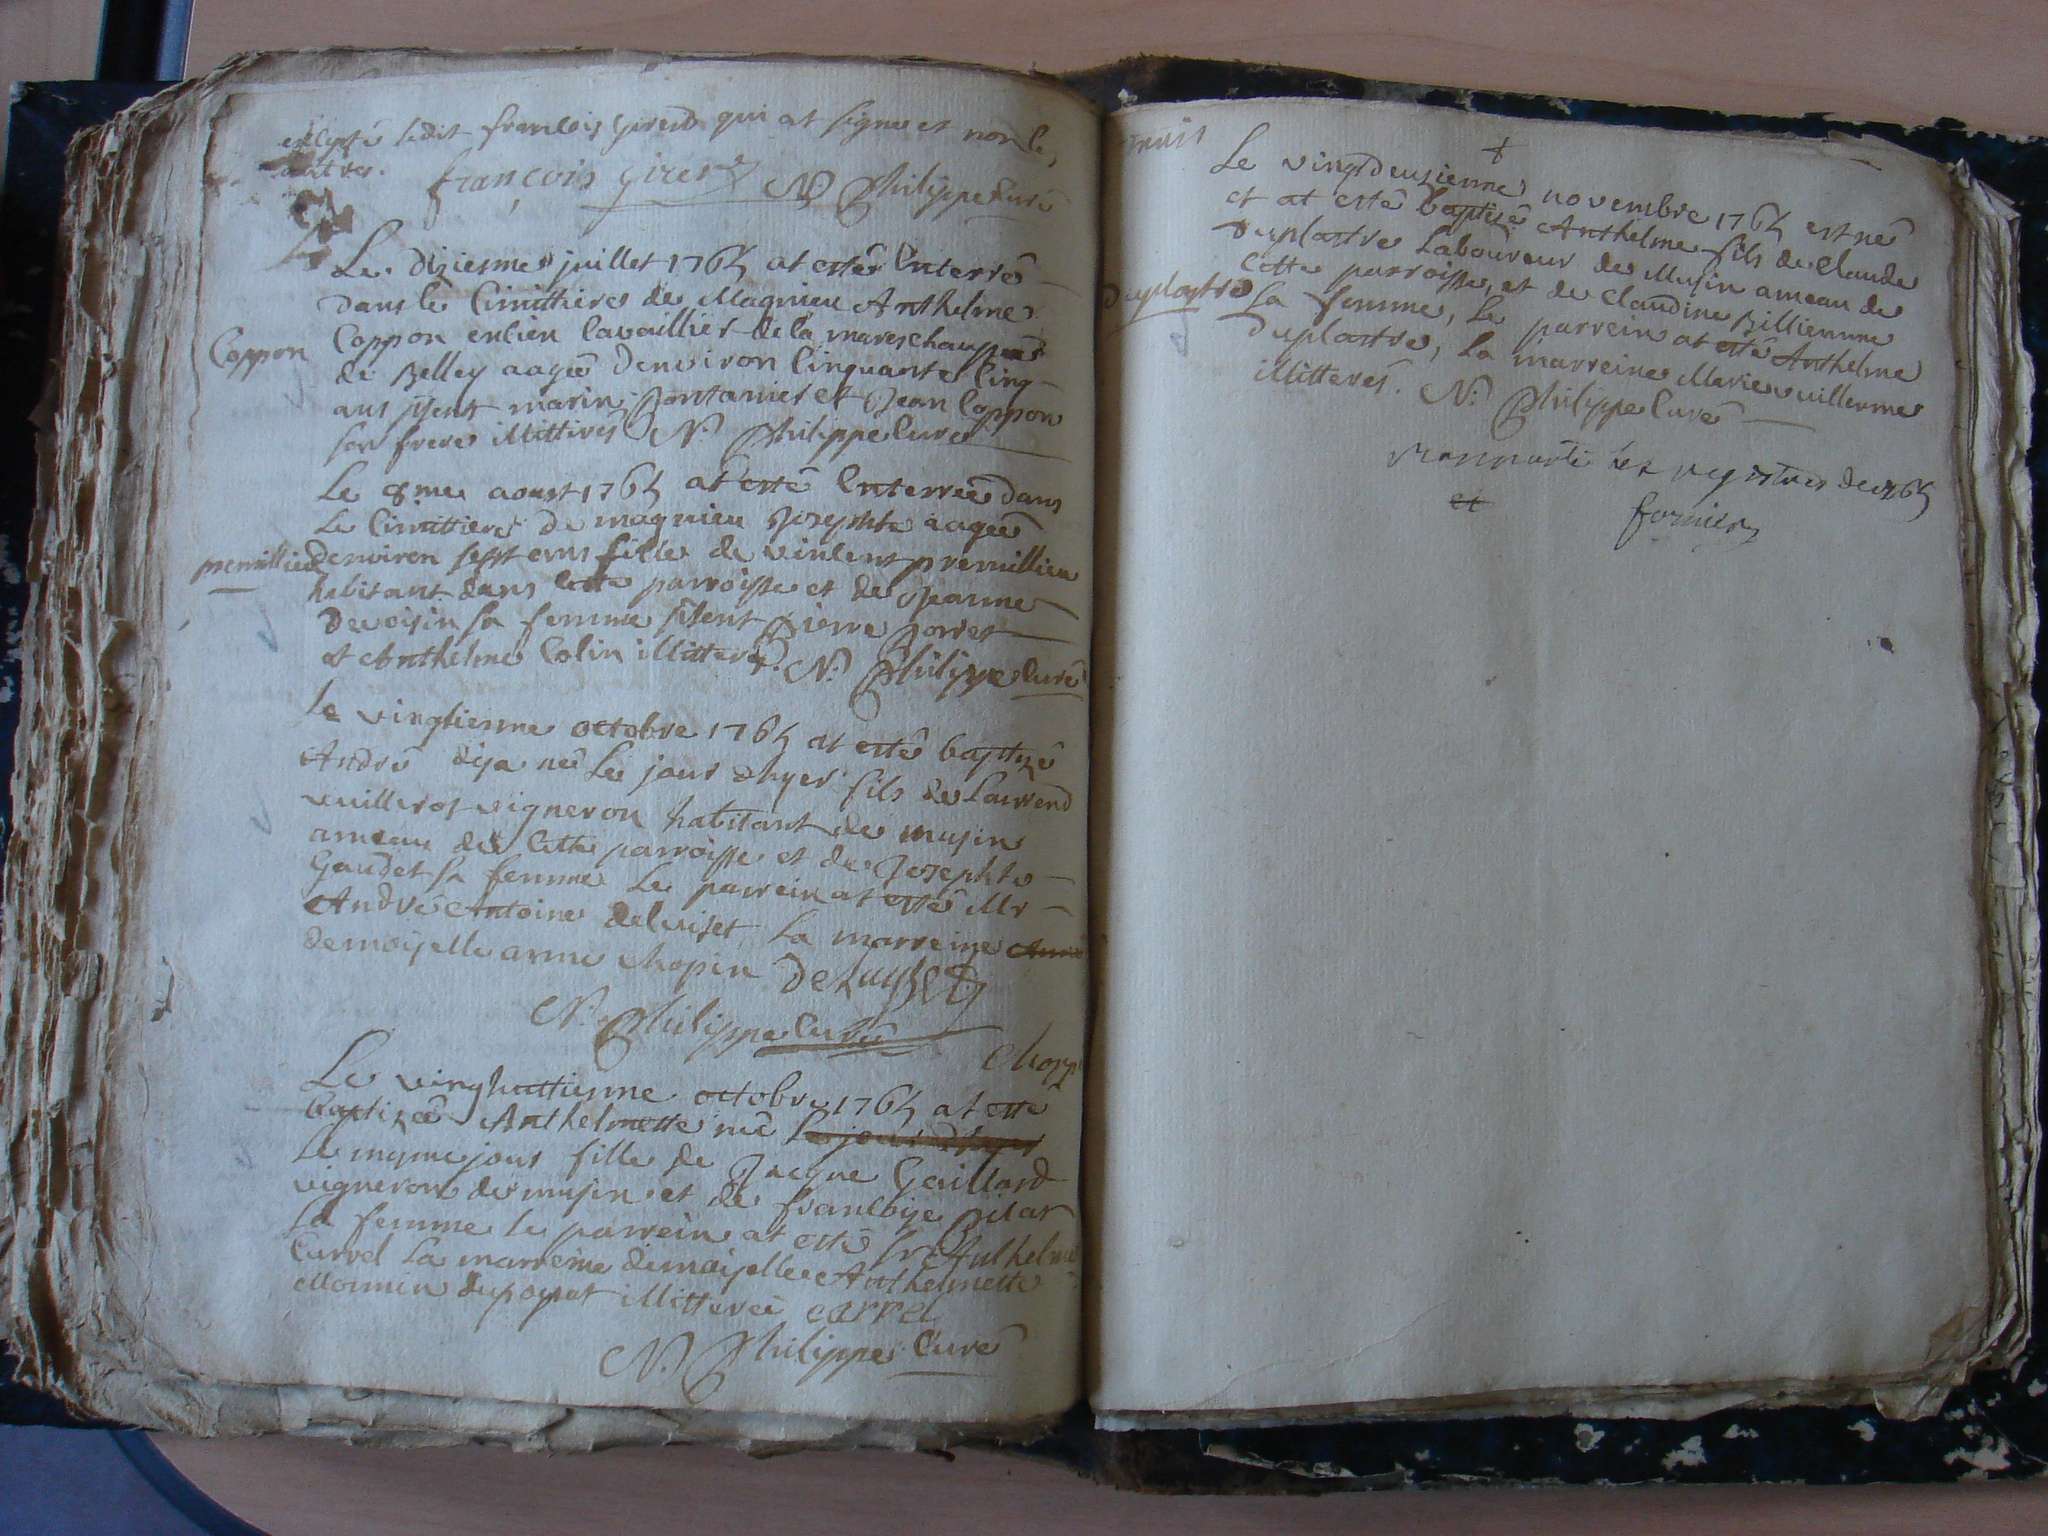 excepté ledit francois girerd qui at signe et non les
autres. françois girerd N. Philippe Curé
Le dizieme juillet 1765 at estée Enterré
dans le Cimittiere de Magnieu Anthelme
Coppon
Coppon entien Cavaillier de la mareschaupcée
de Belley aagée denviron Cinquante Cinq
ans psent marin Pontanier et Jean Coppon
son frere illittirés N. Philippe Curé
Le 8me aoust 1765 at esté Enterrée dans
Le Cimittiere de magnieu Josephte aagée
premillieu
denviron sept ans fille de vincent premillieu
habitant dans Cette parroisse et de Jeanne
Devoisin sa femme psent Pierre
et Anthelme Colin illitteres. N. Philippe Curé
Le vingtiesme octobre 1765 at esté baptizé
André dija né Le jour dhyer fils de Laurend
vuillerot vigneron habitant de musin
ameau de Cette parroisse et de Josephte
Gaudet sa femme Le parrein at esté Mr
André Antoine deluiset La marreine Anne
demoiselle anne Chopin Deluyset
N. Philippe Curé
Chopin
Le vinghuittiesme octobre 1765 at esté
baptizée Anthelmette née Le jour dhyer
Le mesme jour fille de Jacque Gaillard
vigneron de musin et de francoise Pilat
sa femme le parrein at esté Anthelme
Carrel La marreine demoiselle Anthelmette
Monnier illitterée carrel
N. Philippe Curé
Le vingtdeuzieme novembre 1765 est né
et at esté baptisé Anthelme fils de Claude
Duplastre Laboureur de Musin ameau de
Cette parroisse, et de Claudine Billiemme
Duplastre
Sa femme, Le parrein at esté Anthelme
Duplastre, La marreine Marie vuillerme
illitterés. N. Philippe Curé
registres de 1765
et
fornier